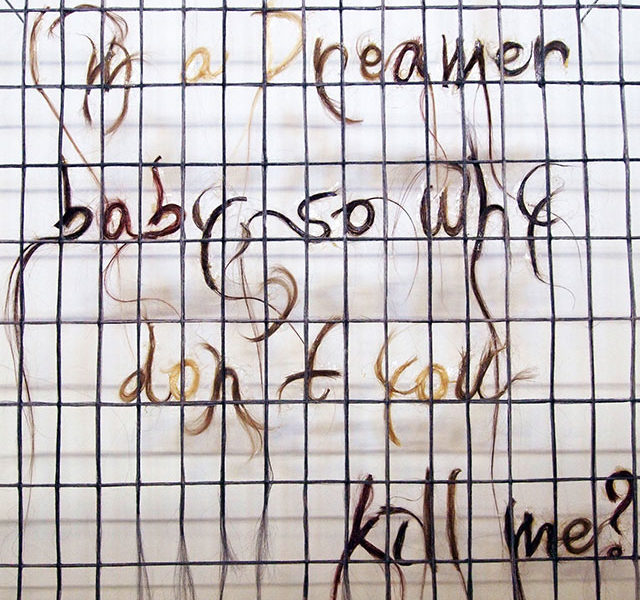 I'm a Dreamer
baby so why
don't you
kill me?